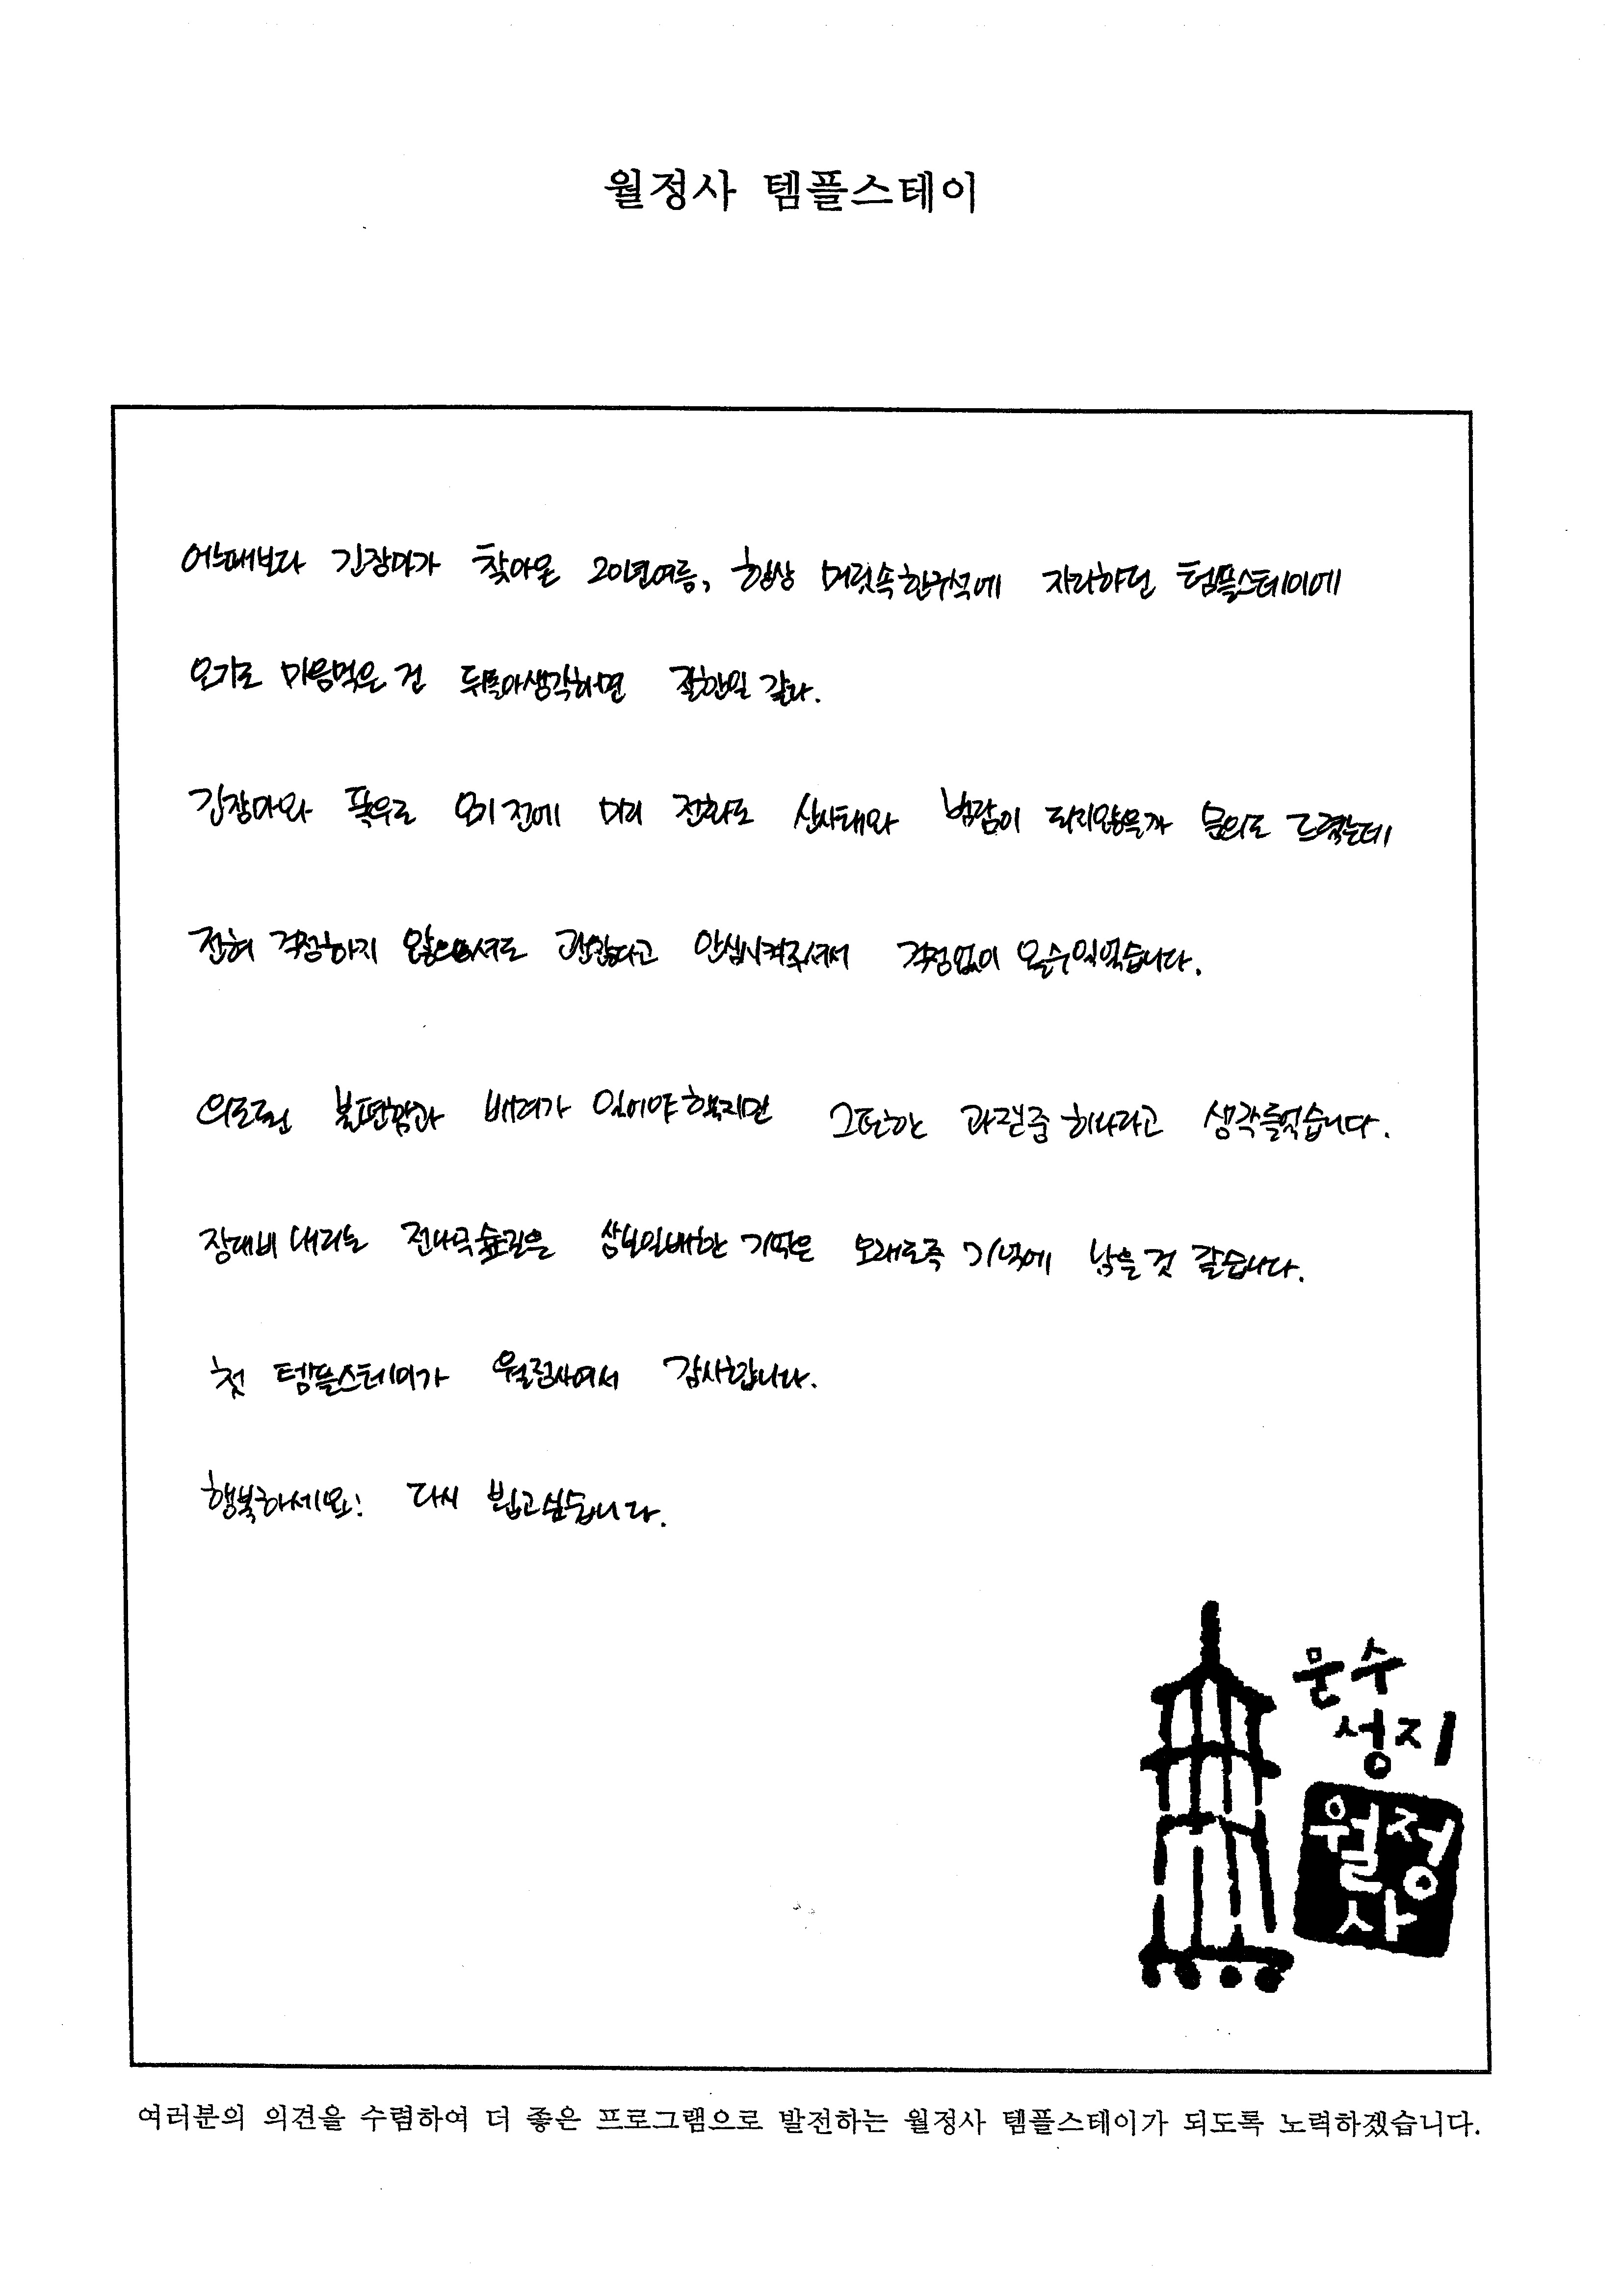 월정사 템플스테이
어느때보다 긴장마가 찾아온 2011년여름, 항상 머릿속한구석에 자리하던 템플스테이에
오기로 마음먹은 건 뒤돌아생각하면 잘한일 같다.
긴장마와 폭우로 오기전에 미리 전화로 산사태와 범람이 되지않을까 문의도 드렸는데
전혀 걱정하지 않으셔도 괜찮다고 안심시켜주셔서 걱정없이 올수있었습니다.
의도된 불편함과 배려가 있어야했지만 그또한 과정중 하나라고 생각들었습니다.
장대비 내리는 전나무숲길은 삼보일배한 기억은 오래도록 기억에 남을 것 같습니다.
첫 템플스테이가 월정사여서 감사합니다.
행복하세요! 다시 뵙고싶습니다.
문수
성지
월정
사
여러분의 의견을 수렴하여 더 좋은 프로그램으로 발전하는 월정사 템플스테이가 되도록 노력하겠습니다.